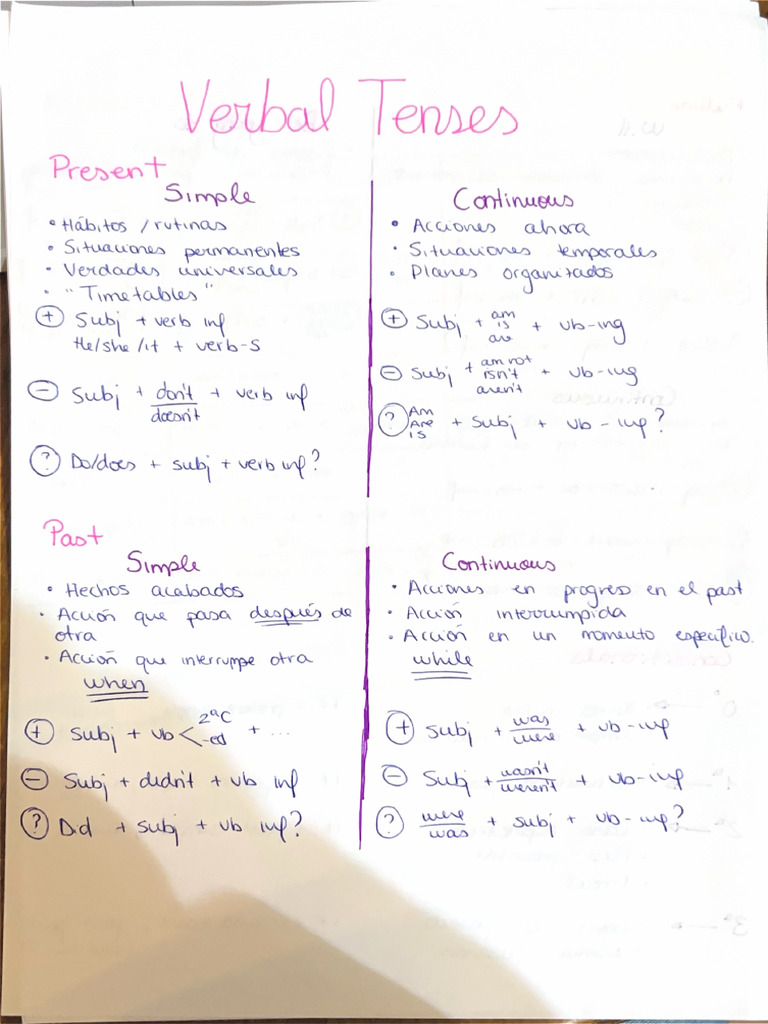 Verbal Tenses
Present
Simple
• Hábitos / rutinas
• Situaciones permanentes
• Verdades universales
• "Timetables"
+ Subj + verb inf
He/she/it + verb-s
- Subj + don't + verb inf
doesn't
? Do/does + subj + verb inf?
Continuous
• Acciones ahora
• Situaciones temporales
• Planes organizados
+ Subj + am + vb-ing
is
are
- Subj + am not + vb-ing
isn't
aren't
? Am + subj + vb-ing?
Are
is
Past
Simple
• Hechos acabados
• Acción que pasa después de
otra
• Acción que interrumpe otra
when
+ Subj + vb < 2ªC + ...
-ed
- Subj + didn't + vb inf
? Did + subj + vb inf?
Continuous
• Acciones en progreso en el past
• Acción interrumpida
• Acción en un momento específico.
while
+ Subj + was + vb-ing
were
- Subj + wasn't + vb-ing
weren't
? were + subj + vb-ing?
was